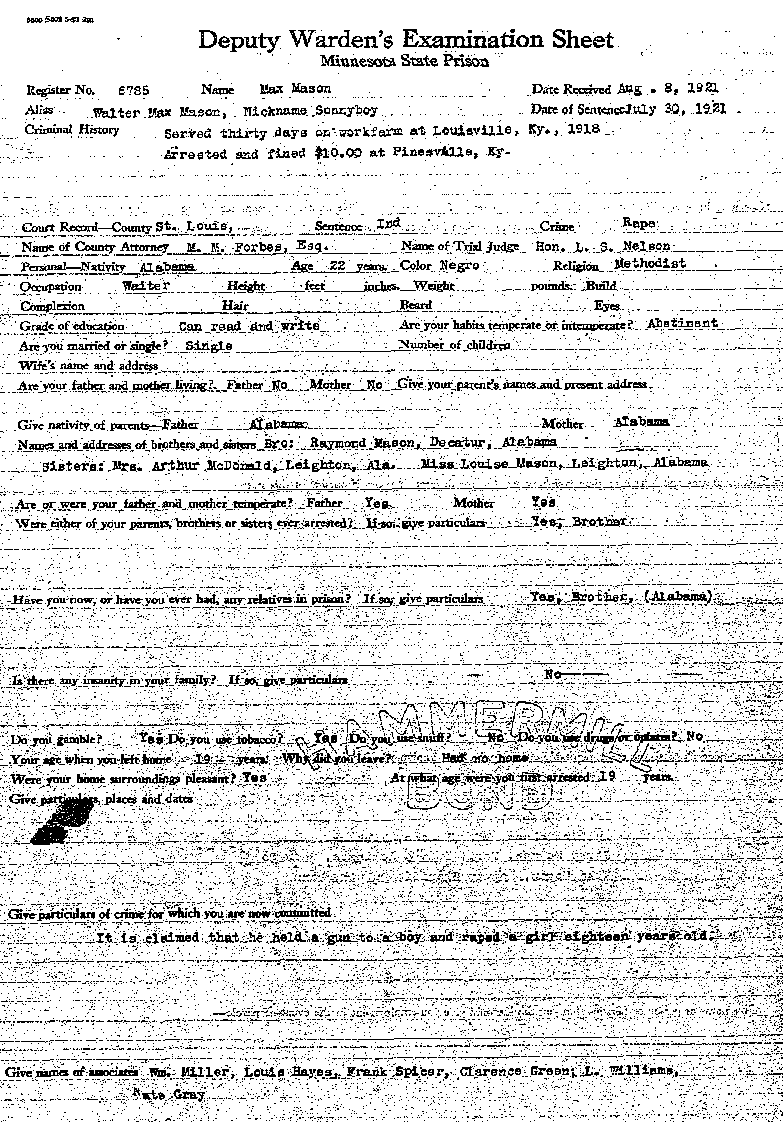 Deputy Warden's Examination Sheet
Minnesota State Prison
Register No. 6785 Name Max Mason Date Received Aug . 8, 1921
Alias Walter Max Mason, Nickname Sonnyboy Date of Sentence July 30, 1921
Criminal History Served thirty days on workfarm at Louisville, Ky., 1918
Arrested and fined $10.00 at Pinesville, Ky-
Court Record—County St. Louis, Sentence Ind Crime Rape
Name of County Attorney M. M. Forbes, Esq. Name of Trial Judge Hon. L. S. Nelson
Personal—Nativity Alabama Age 22 years. Color Negro Religion Methodist
Occupation Waiter Height feet inches. Weight pounds. Build
Complexion Hair Beard Eyes
Grade of education Can read and write Are your habits temperate or intemperate? Abstinent
Are you married or single? Single Number of children
Wife's name and address
Are your father and mother living? Father No Mother No Give your parent's names and present address
Give nativity of parents—Father Alabama Mother Alabama
Names and addresses of brothers and sisters Bro: Raymond Mason, Decatur, Alabama
Sisters: Mrs. Arthur McDonald, Leighton, Ala. Miss Louise Mason, Leighton, Alabama
Are or were your father and mother temperate? Father Yes Mother Yes
Were either of your parents, brothers or sisters ever arrested? If so, give particulars Yes, Brother
Have you now, or have you ever had, any relatives in prison? If so, give particulars Yes, Brother, (Alabama)
Is there any insanity in your family? If so, give particulars No
Do you gamble? Yes Do you use tobacco? Yes Do you use snuff? No Do you use drugs or opiates? No
Your age when you left home 19 years. Why did you leave? Had no home
Were your home surroundings pleasant? Yes At what age were you first arrested 19 years.
Give particulars, places and dates
HAMMERMILL
BOND
Give particulars of crime for which you are now committed
It is claimed that he held a gun to a boy and raped a girl eighteen years old.
Give names of associates Wm. Miller, Louis Hayes, Frank Spicer, Clarence Green, L. Williams,
Nate Gray